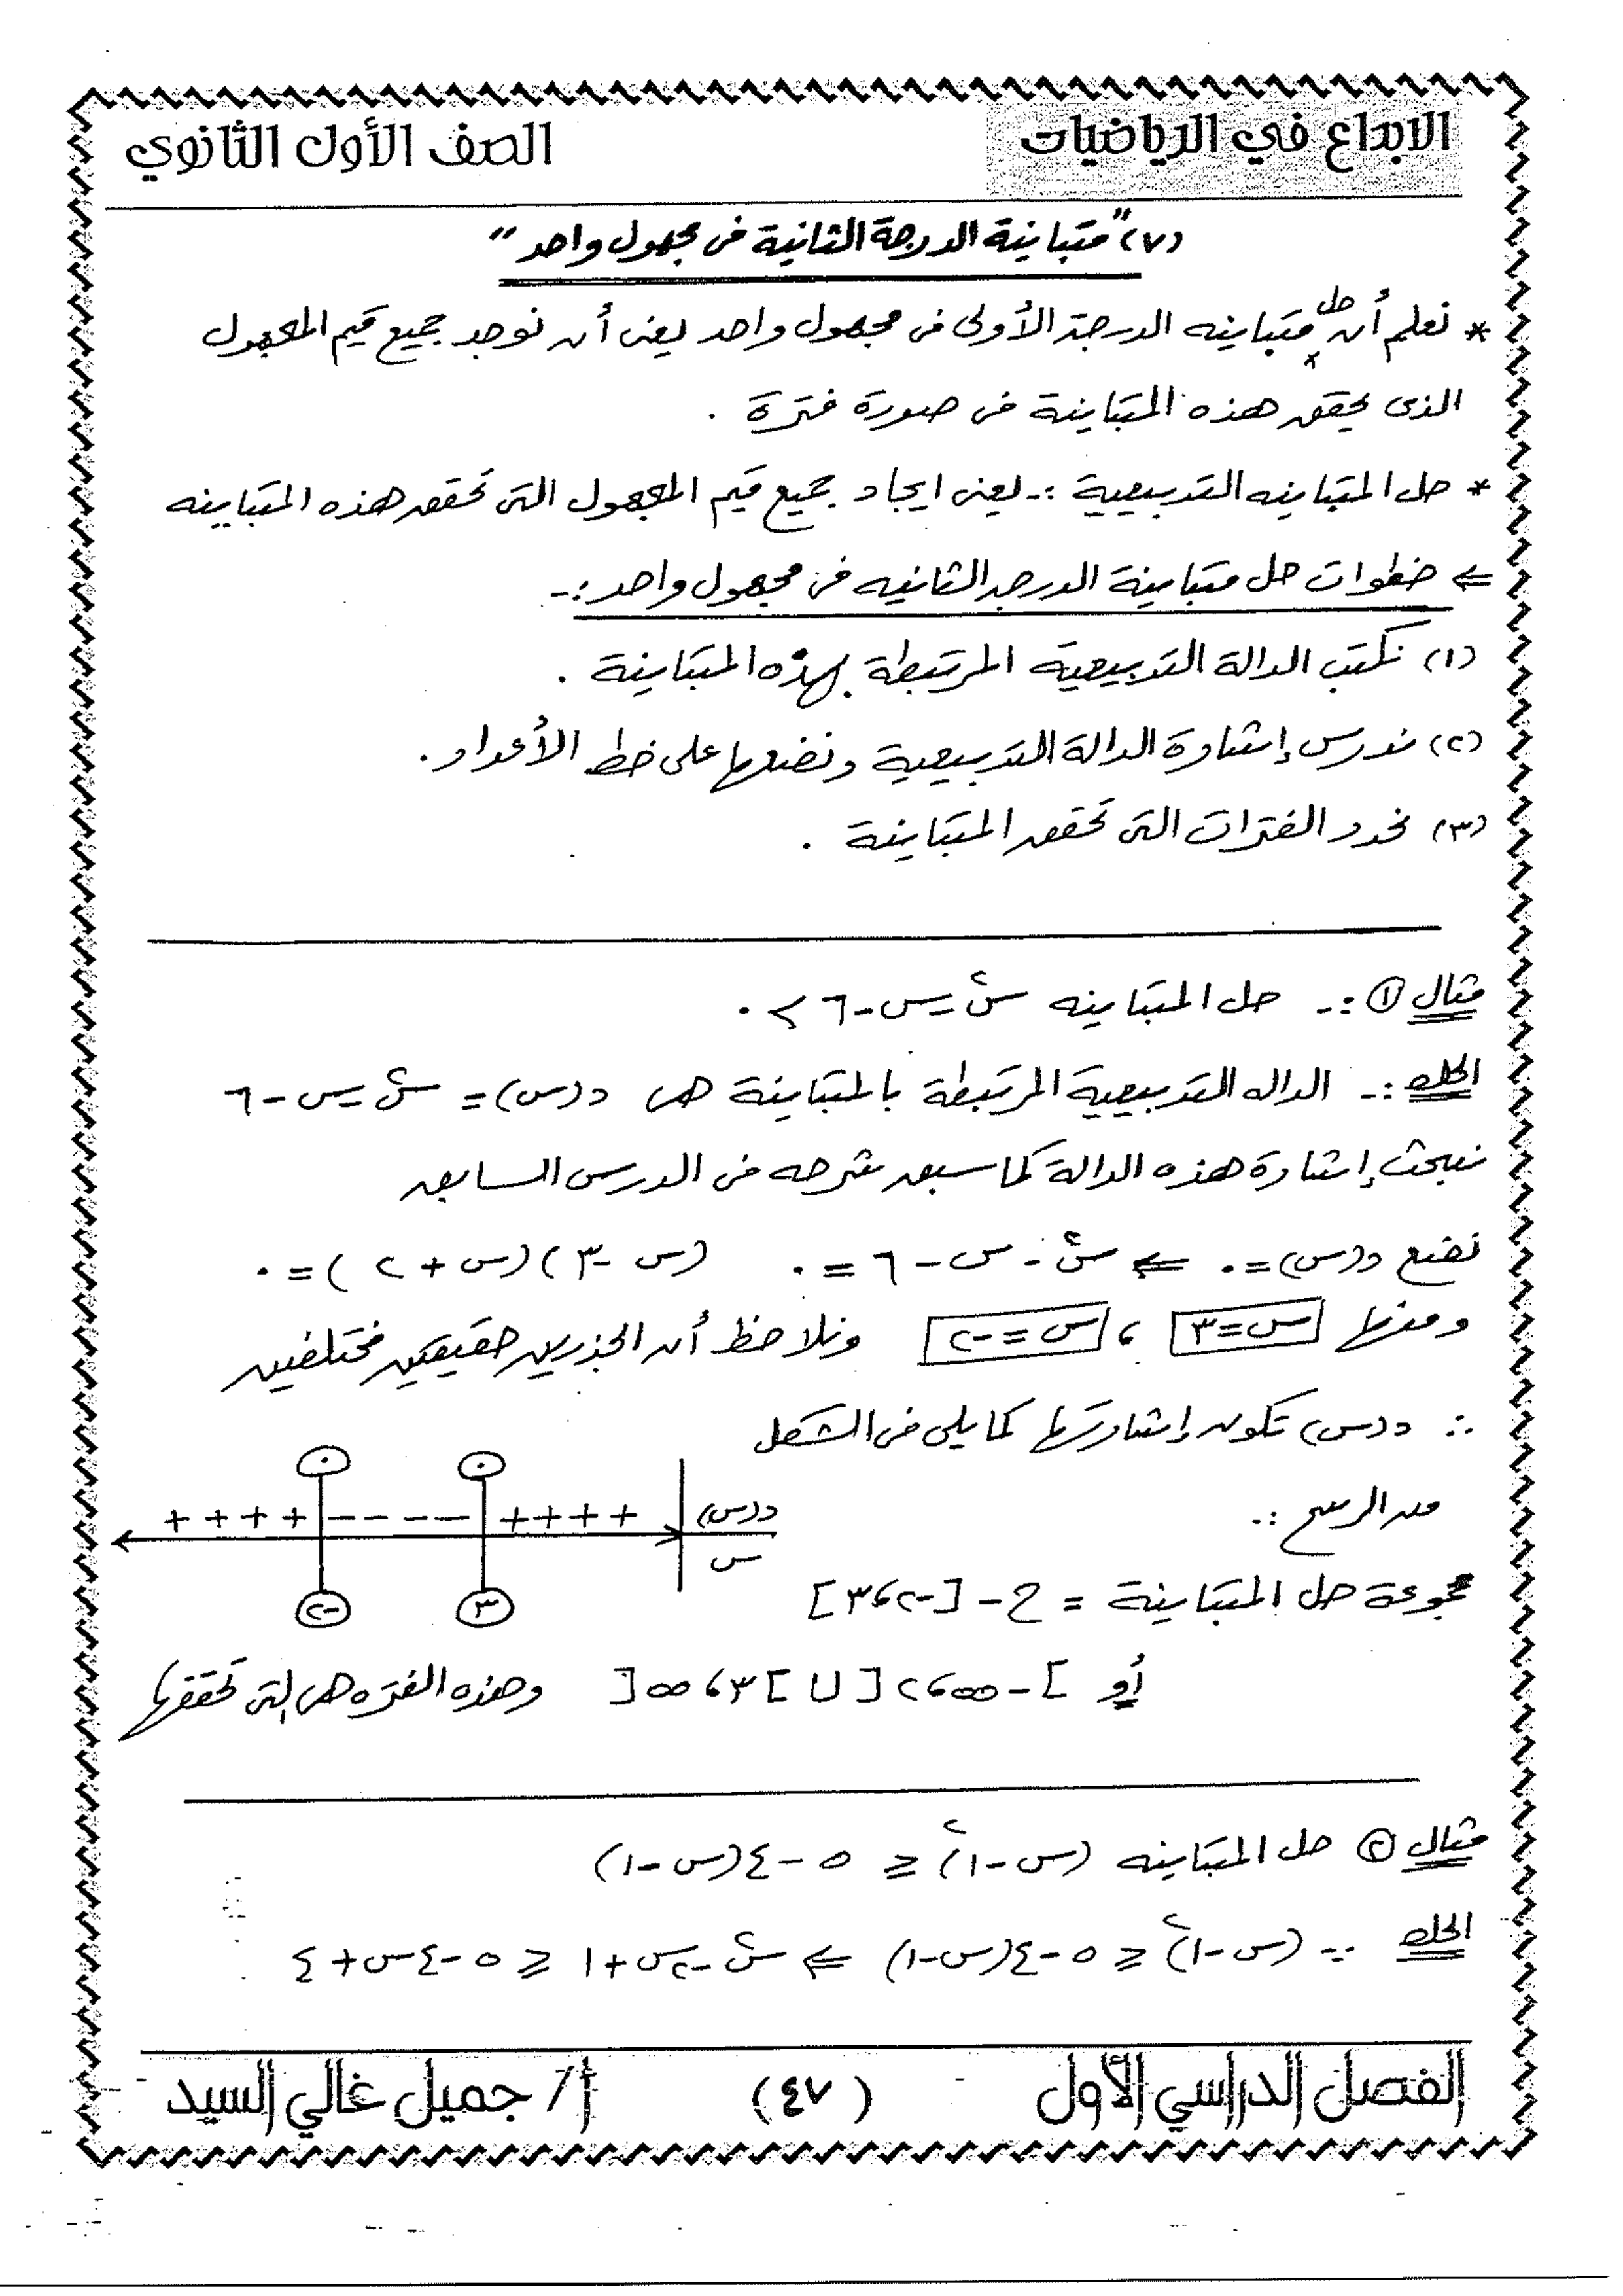 الابداع في الرياضيات
الصف الأول الثانوي
(٧) "متباينة الدرجة الثانية فى مجهول واحد"
* نعلم أن حل متباينه الدرجة الأولى فى مجهول واحد يعنى أن نوجد جميع قيم المجهول
الذى يحقق هذه المتباينة فى صورة فترة .
* حل المتباينه التربيعية :- يعنى ايجاد جميع قيم المجهول التى تحقق هذه المتباينه
⇐ خطوات حل متباينة الدرجه الثانيه فى مجهول واحد :-
(١) نكتب الدالة التربيعية المرتبطة بهذه المتباينة .
(٢) ندرس إشارة الدالة التربيعية ونضعها على خط الأعداد .
(٣) نحدد الفترات التى تحقق المتباينة .
مثال ① :- حل المتباينه س٢ - س - ٦ > ٠
الحل :- الداله التربيعية المرتبطة بالمتباينة هى د(س) = س٢ - س - ٦
نبحث إشارة هذه الدالة كما سبق شرحه فى الدرس السابق
نضع د(س) = ٠ ⇐ س٢ - س - ٦ = ٠ (س - ٣)(س + ٢) = ٠
ومنها س = ٣ ، س = -٢ ونلاحظ أن الجذرين حقيقيين مختلفين
∴ د(س) تكون إشارتها كما يلى فى الشكل
٠ ٠
د(س) ++++ ---- ++++
س
٣ -٢
من الرسم :-
مجموعة حل المتباينة = ح - [-٢ ، ٣]
أو ]-∞ ، ٢[ ∪ ]٣ ، ∞[ وهذه الفتره هى التى تحققها
مثال ② حل المتباينه (س - ١)٢ ≤ ٥ - ٤(س - ١)
الحل ∵ (س - ١)٢ ≤ ٥ - ٤(س - ١) ⇐ س٢ - ٢س + ١ ≤ ٥ - ٤س + ٤
الفصل الدراسي الأول
( ٤٧ )
أ / جميل غالي السيد